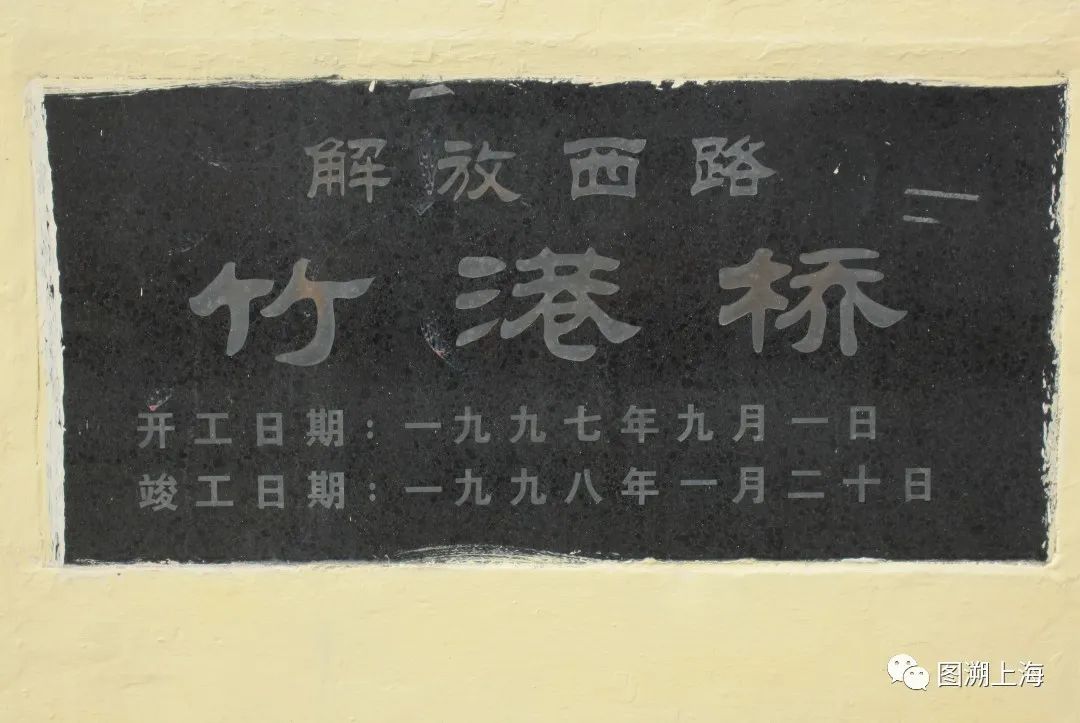 解放西路
竹港桥
开工日期：一九九七年九月一日
竣工日期：一九九八年一月二十日
图溯上海